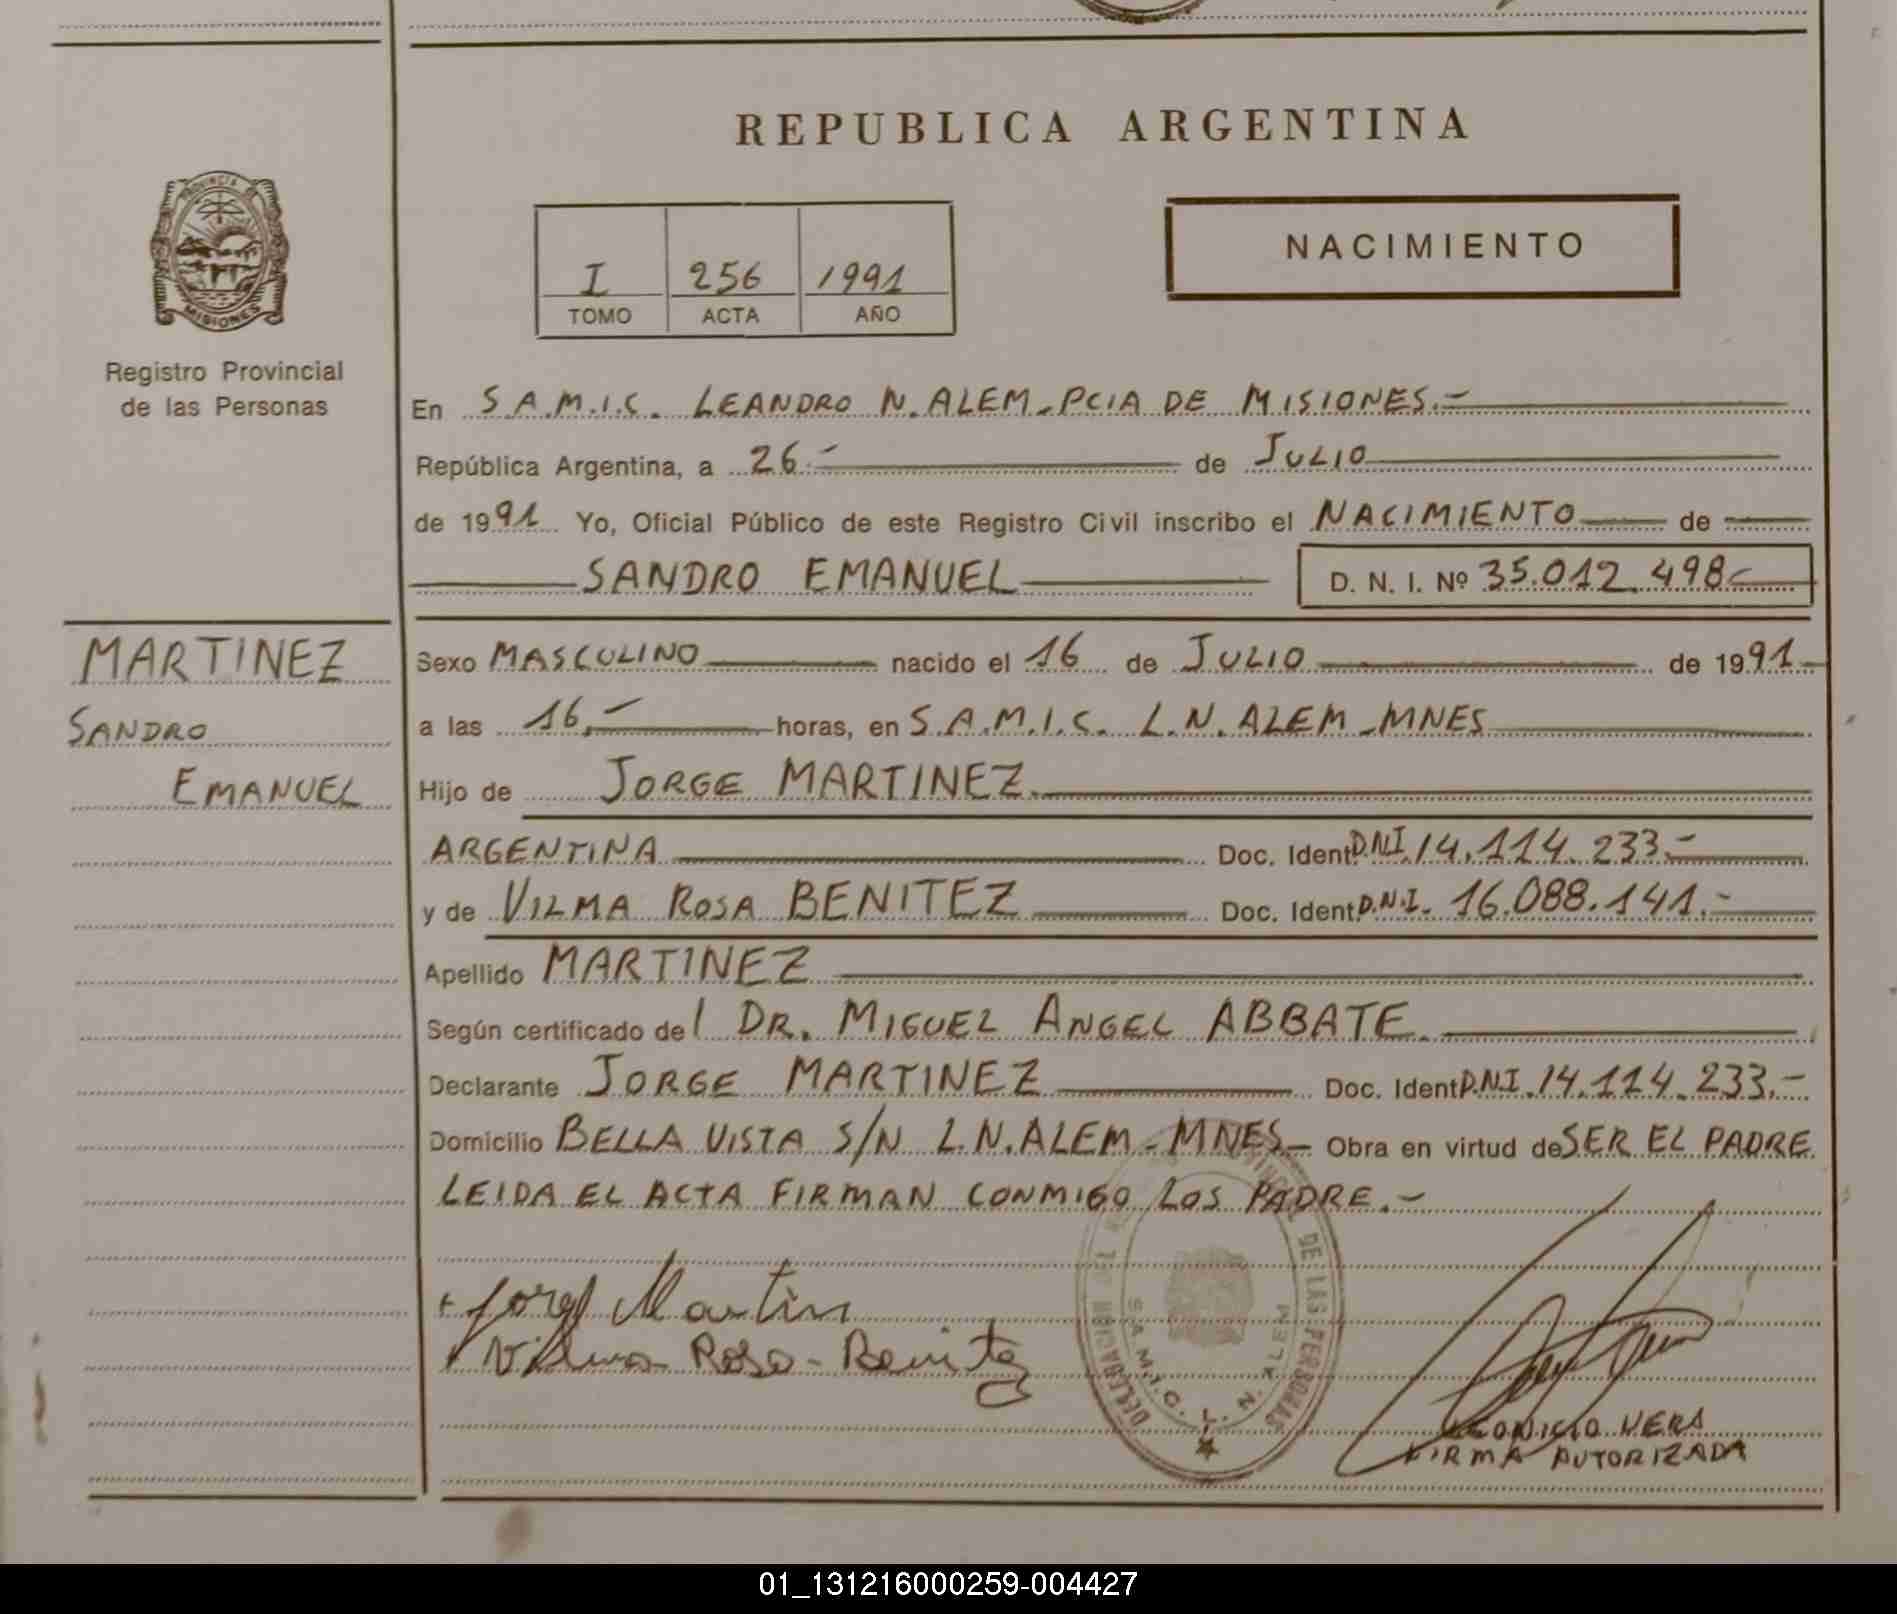 REPUBLICA ARGENTINA
PROVINCIA DE
MISIONES
Registro Provincial
de las Personas
I 256 1991
TOMO ACTA AÑO
NACIMIENTO
En S.A.M.I.C. LEANDRO N. ALEM - PCIA DE MISIONES.-
República Argentina, a 26.- de JULIO
de 1991 Yo, Oficial Público de este Registro Civil inscribo el NACIMIENTO de
SANDRO EMANUEL D. N. I. Nº 35.012.498
MARTINEZ
SANDRO
EMANUEL
Sexo MASCULINO nacido el 16 de JULIO de 1991
a las 16,- horas, en S.A.M.I.C. L.N. ALEM - MNES
Hijo de JORGE MARTINEZ.
ARGENTINA Doc. Ident D.N.I. 14.114.233.-
y de VILMA ROSA BENITEZ Doc. Ident D.N.I. 16.088.141.-
Apellido MARTINEZ
Según certificado del DR. MIGUEL ANGEL ABBATE.
Declarante JORGE MARTINEZ Doc. Ident D.N.I. 14.114.233.-
Domicilio BELLA VISTA S/N L.N. ALEM - MNES - Obra en virtud de SER EL PADRE
LEIDA EL ACTA FIRMAN CONMIGO LOS PADRE.-
Jorge Martin
Vilma Rosa - Benitez
DELEGACION DEL DE LAS PERSONAS
S.A.M.I.C. L. N. ALEM
VERA
FIRMA AUTORIZADA
01_131216000259-004427